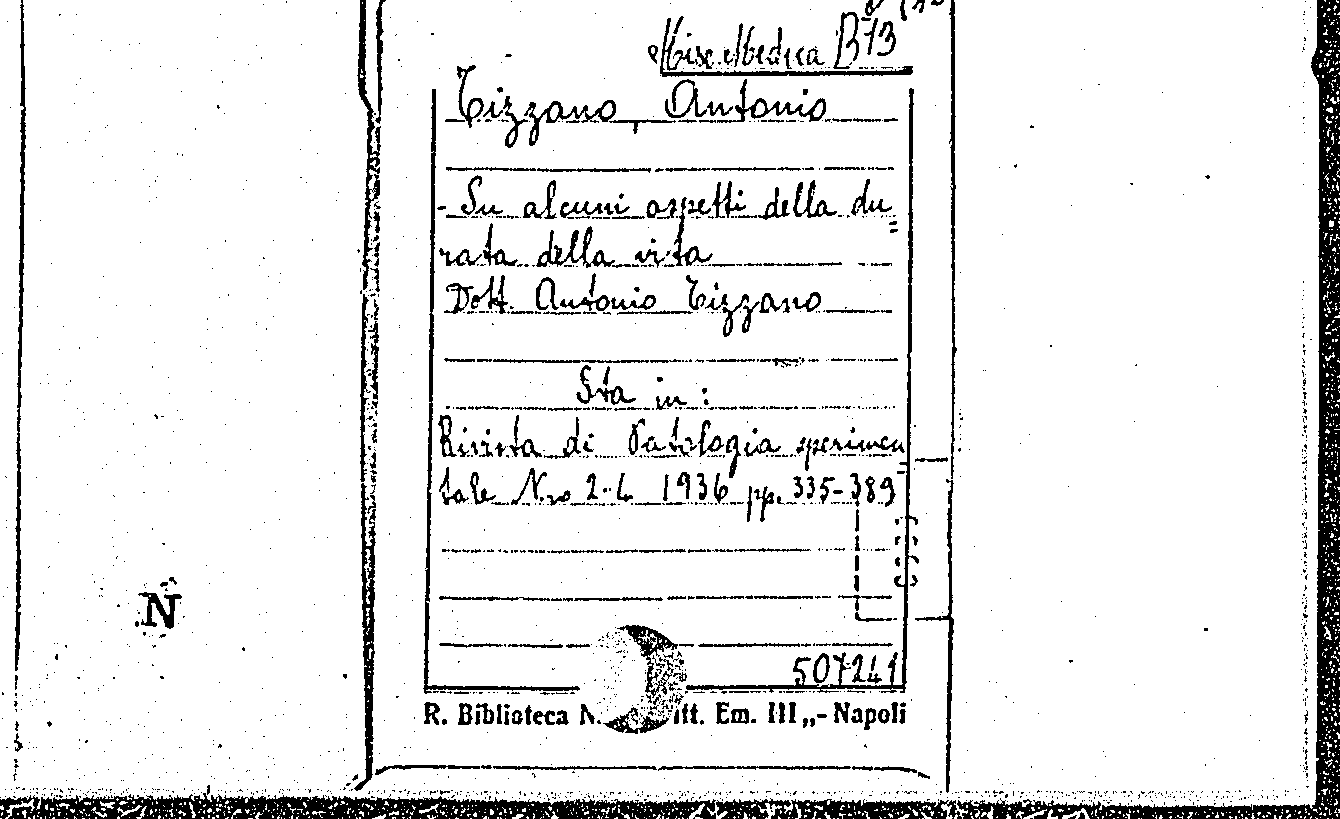 Misc. Medica B13
Tizzano, Antonio
- Su alcuni aspetti della du=
rata della vita
Dott. Antonio Tizzano
Sta in:
Rivista di Patologia sperimen=
tale N.ro 2-4 1936 pp. 335-389
507241
R. Biblioteca N. itt. Em. III „- Napoli
N